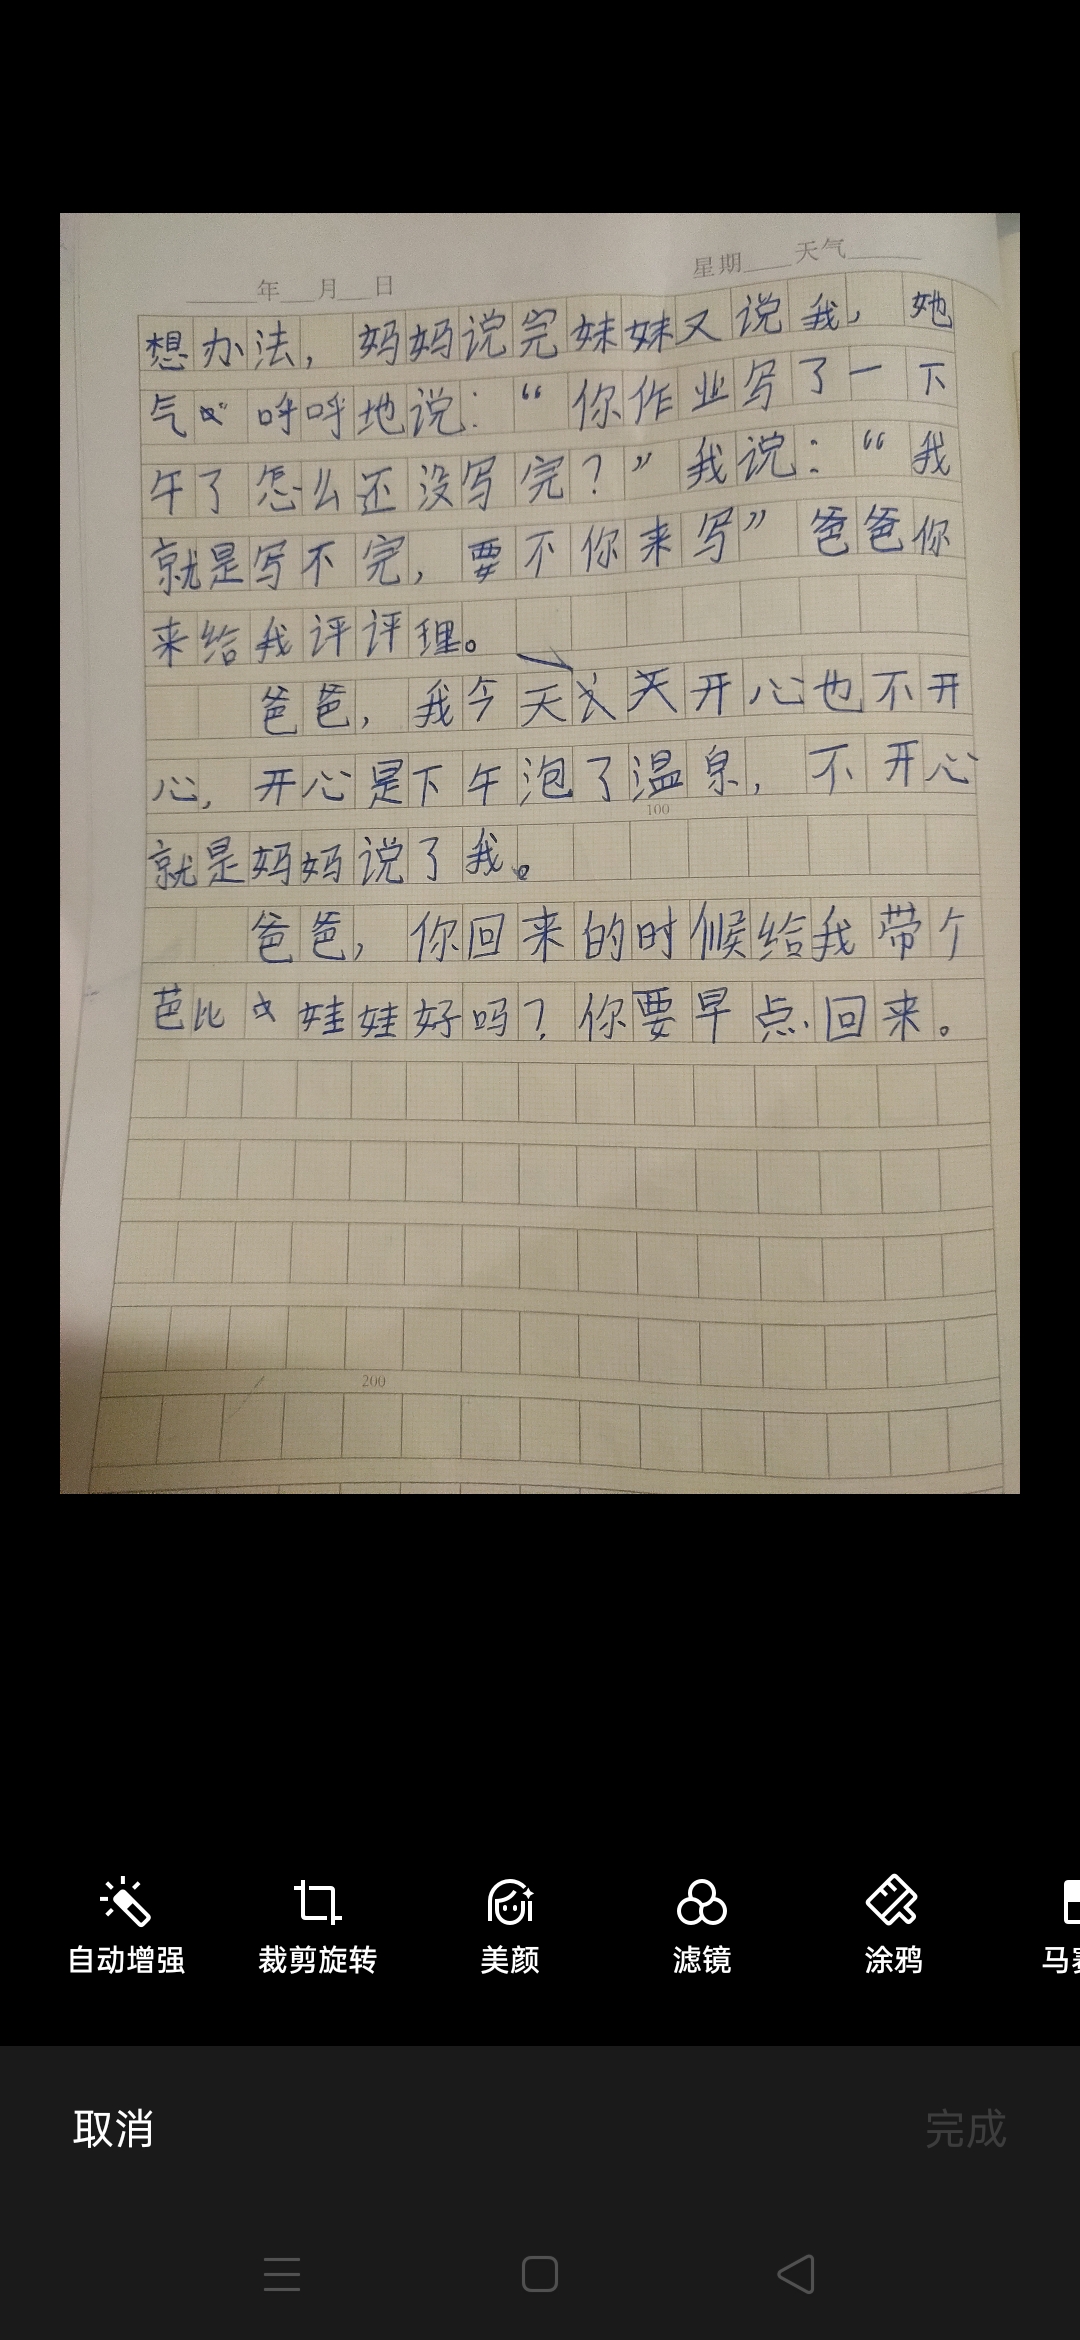 年 月 日 星期 天气
想办法，妈妈说完妹妹又说我，她
气呼呼地说：“你作业写了一下
午了怎么还没写完？”我说：“我
就是写不完，要不你来写”爸爸你
来给我评评理。
爸爸，我今天天开心也不开
心，开心是下午泡了温泉，不开心
100
就是妈妈说了我。
爸爸，你回来的时候给我带个
芭比娃娃好吗？你要早点回来。
200
自动增强 裁剪旋转 美颜 滤镜 涂鸦
取消 完成